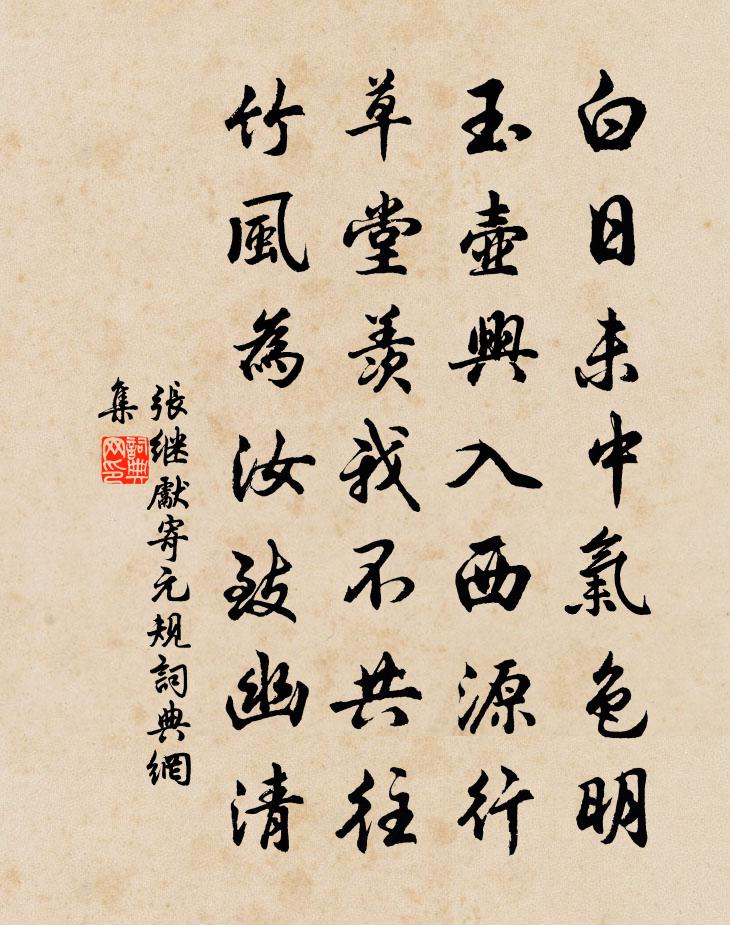 白日未中氣色明
玉壺興入西源行
草堂羨我不共往
竹風為汝致幽清
張继獻寄元規詞典網
集
詞典
网印